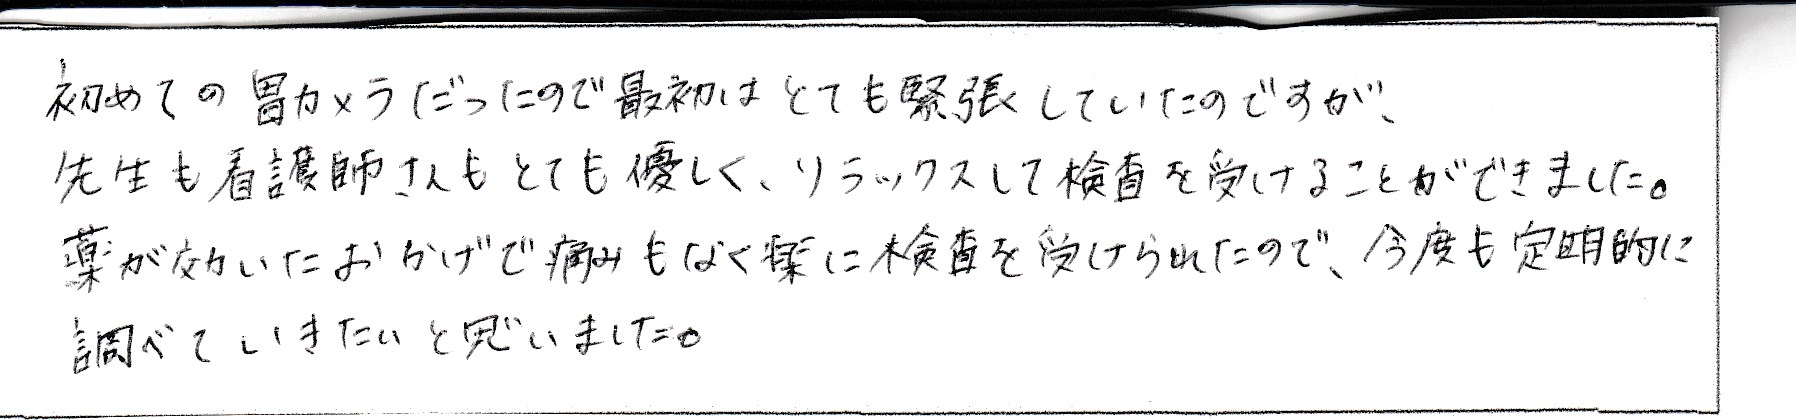 初めての胃カメラだったので最初はとても緊張していたのですが、
先生も看護師さんもとても優しく、リラックスして検査を受けることができました。
薬が効いたおかげで痛みもなく楽に検査を受けられたので、今度も定期的に
調べていきたいと思いました。